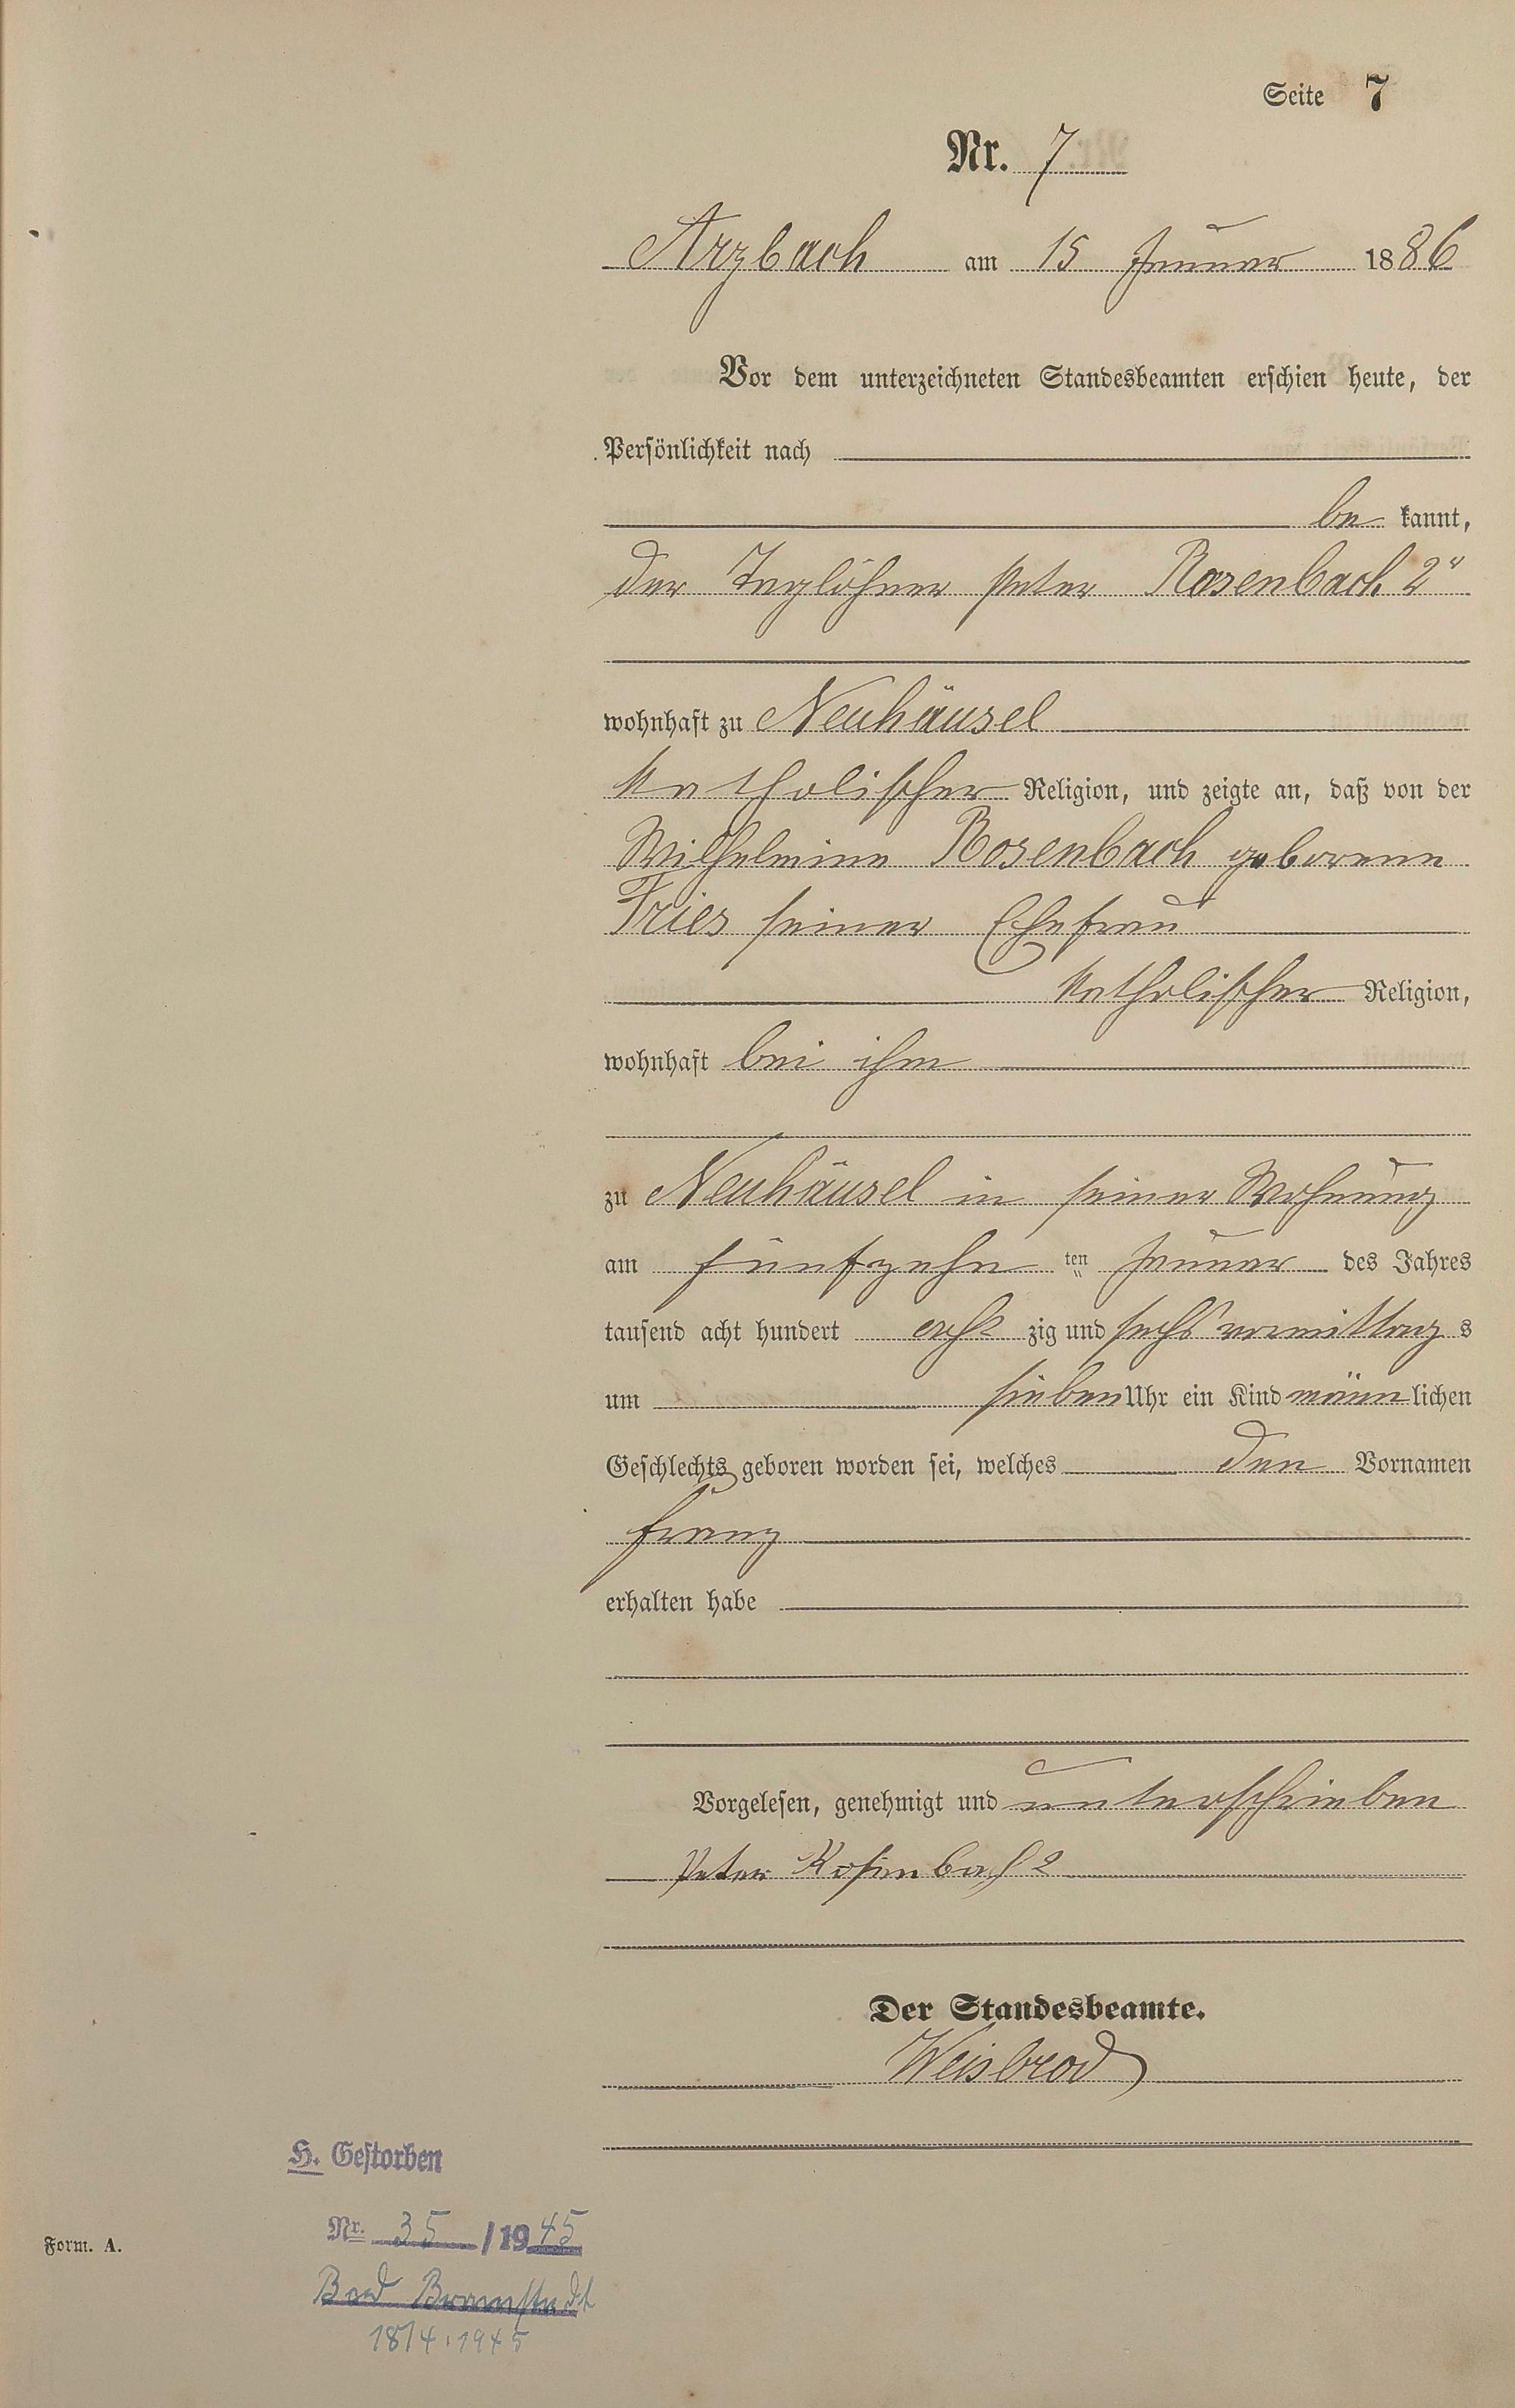 Seite 7
Nr. 7
Arzbach am 15 Januar 1886
Vor dem unterzeichneten Standesbeamten erschien heute, der
Persönlichkeit nach
be kannt,
der Taglöhner Peter Rosenbach 2"
wohnhaft zu Neuhäusel
katholischer Religion, und zeigte an, daß von der
Wilhelmine Rosenbach geborene
Fries seiner Ehefrau
katholischer Religion,
wohnhaft bei ihm
zu Neuhäusel in seiner Wohnung
am fünfzehn ten Januar des Jahres
tausend acht hundert acht zig und sechs vormittag s
um sieben Uhr ein Kind männ lichen
Geschlechts geboren worden sei, welches den Vornamen
Franz
erhalten habe
Vorgelesen, genehmigt und unterschrieben
Peter Rosenbach 2
Der Standesbeamte.
Weisbrod
H. Gestorben
Nr. 35 / 1945
Bad Bramstedt
18/4.1945
Form. A.